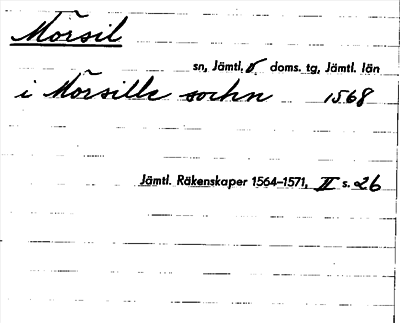 Mörsil
sn, Jämtl. ö. doms. tg, Jämtl. län
i Mörsille sochn 1568
Jämtl. Räkenskaper 1564–1571, II s. 26